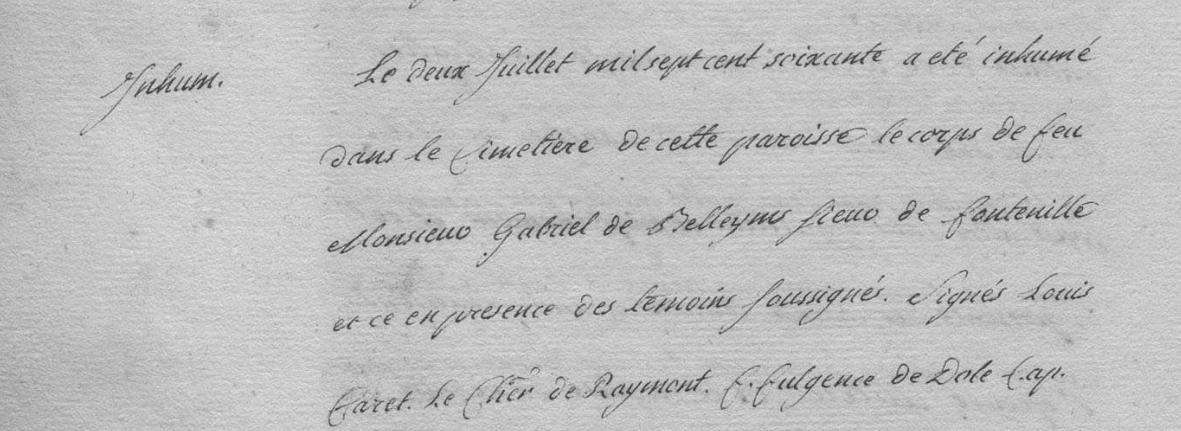 Inhum. Le deux Juillet mil sept cent soixante a eté inhumé
dans le Cimetiére de cette paroisse le corps de feu
Monsieur Gabriel de Belleyme sieur de fontenille
et ce en presence des temoins soussignés. Signés Louis
Caret. Le Chier de Raymont. f. fulgence de Dole Cap.